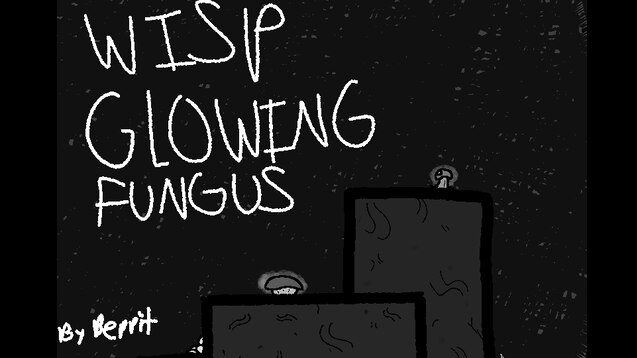 WISP
GLOWING
FUNGUS
By Berrit